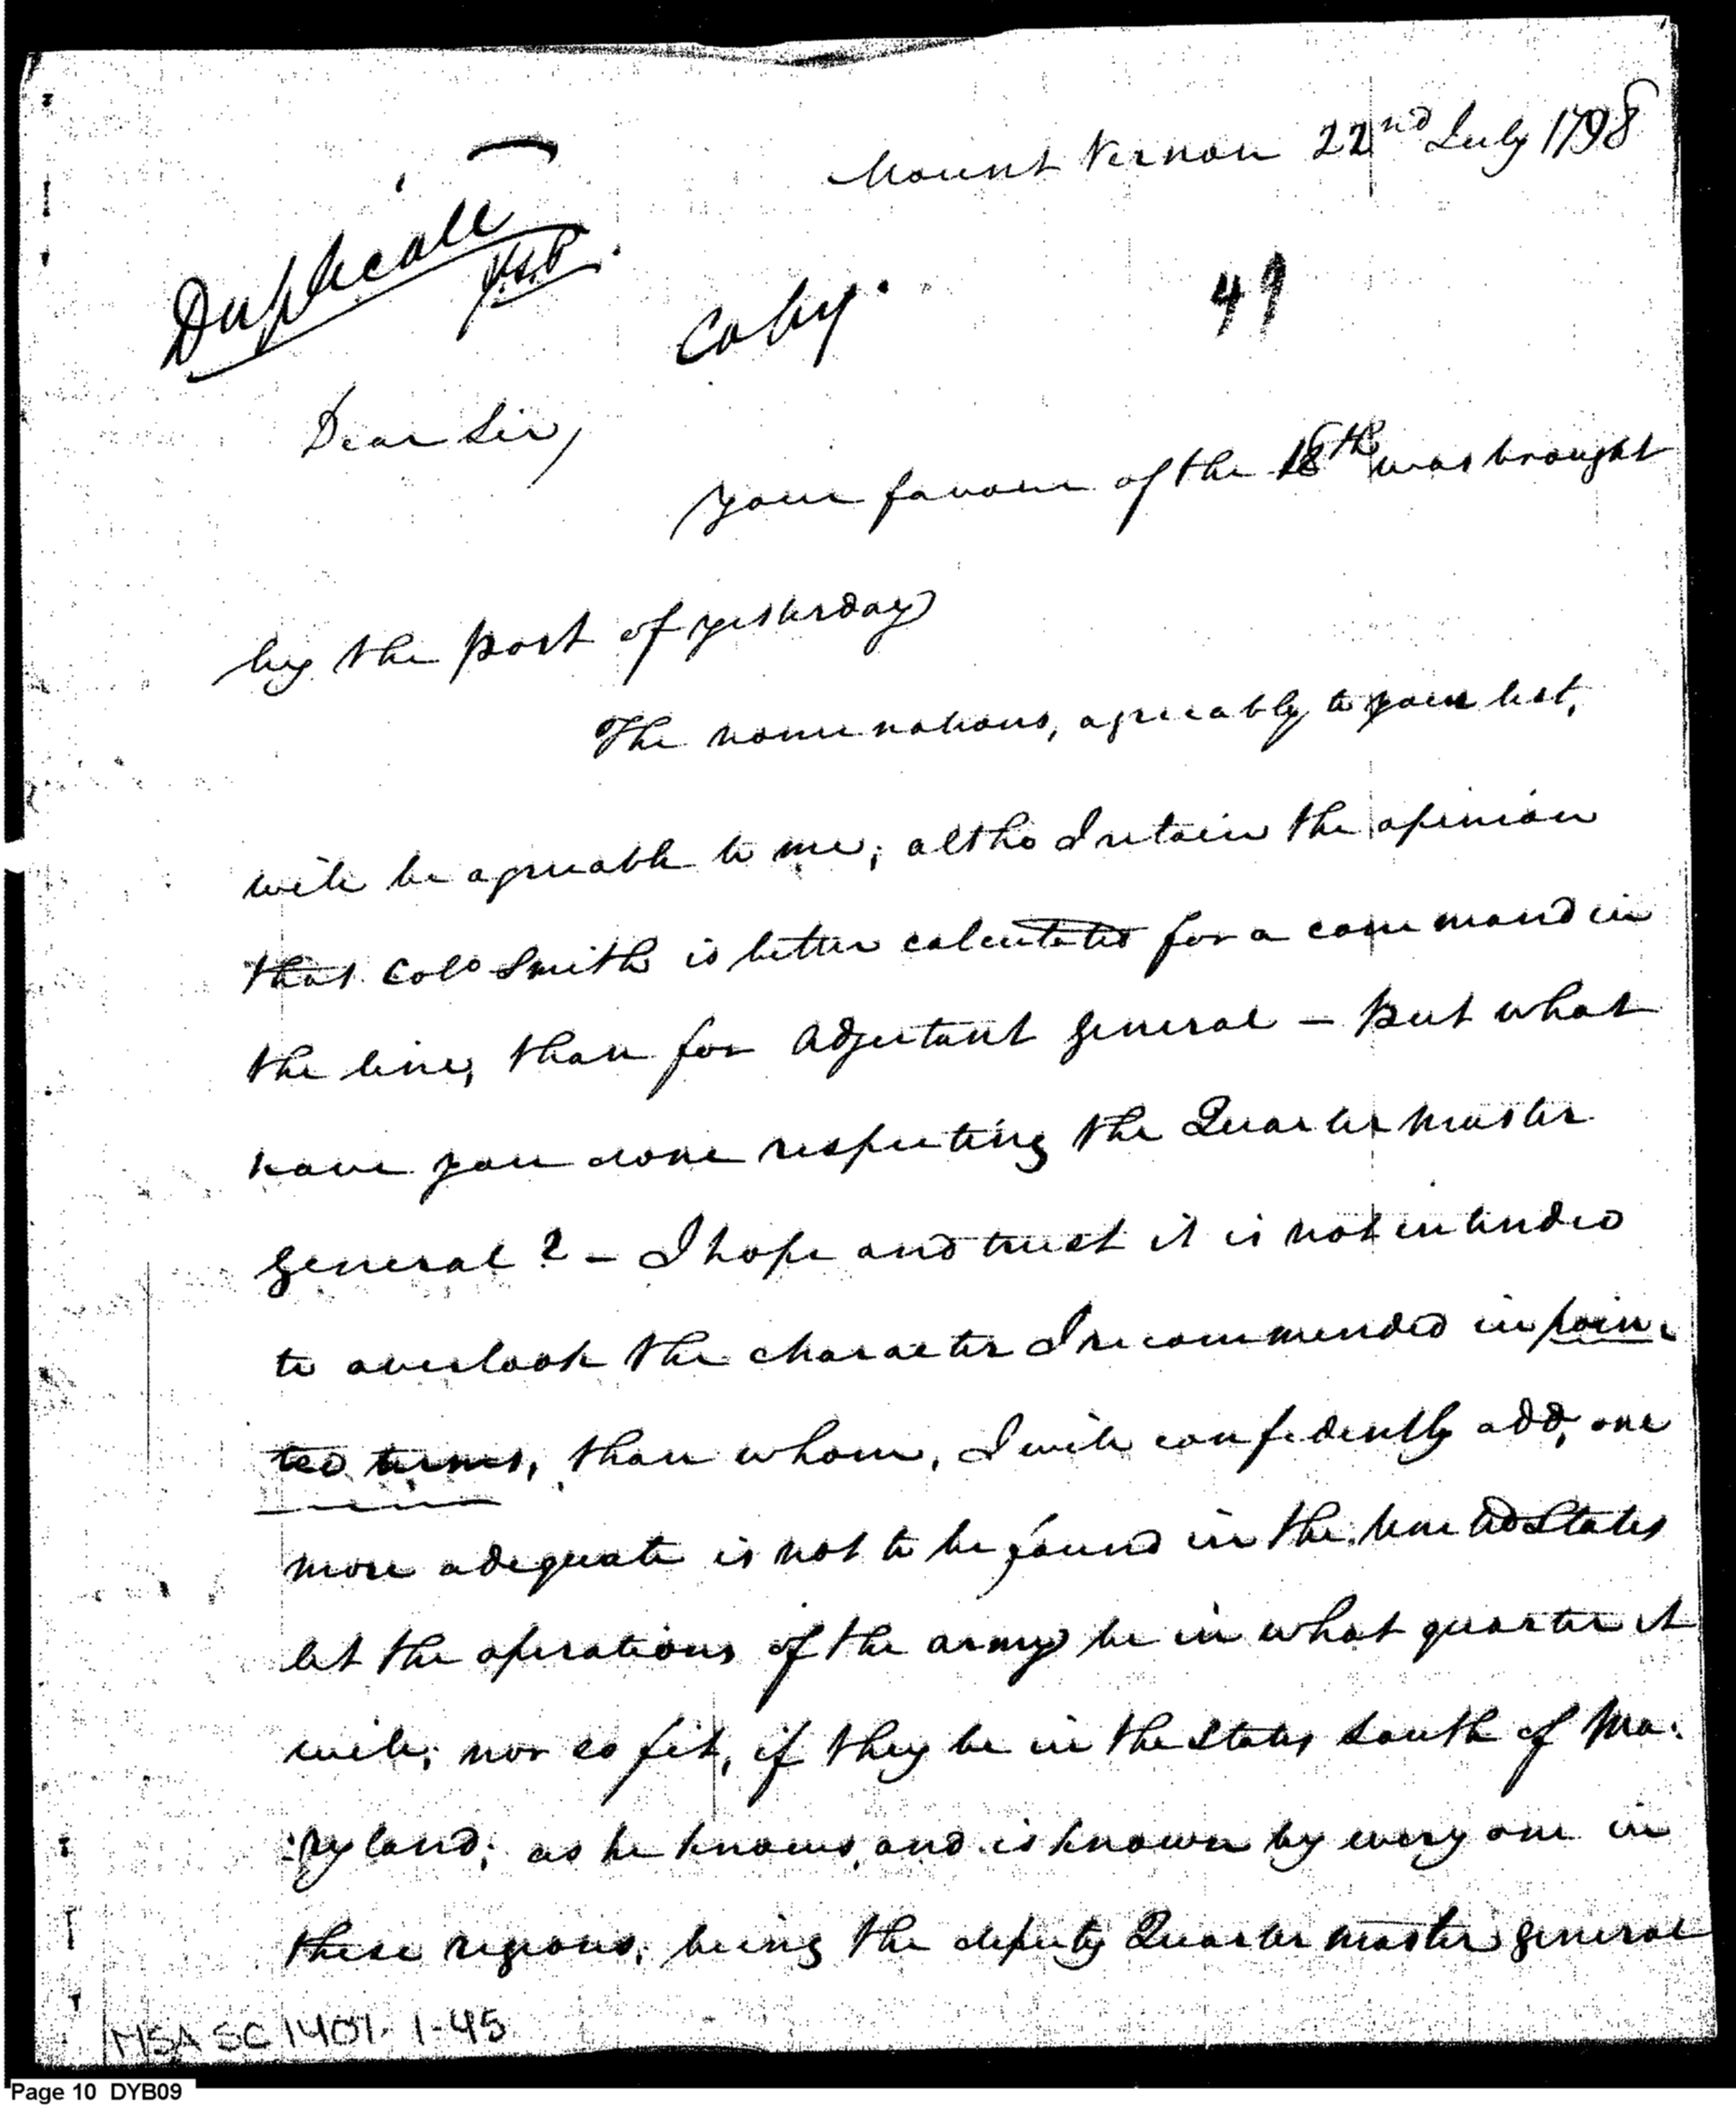 Mount Vernon 22nd July 1798
Duplicate
Copy.
49
Dear Sir,
your favour of the 18th was brought
by the post of yesterday
The nominations, agreeably to your list,
will be agreeable to me; altho I retain the opinion
that Colo Smith is better calculated for a command in
the line, than for Adjutant General – But what
have you done respecting the Quarter Master
General? – I hope and trust it is not intended
to overlook the character I recommended in poin.
ted terms, than whom, I will confidently add, one
more adequate is not to be found in the United States
let the operations of the army be in what quarter it
will; nor so fit, if they be in the States South of Ma:
:ryland; as he knows, and is known by every one in
these regions; being the deputy Quarter Master General
MSA SC 1407-1-45
Page 10 DYB09